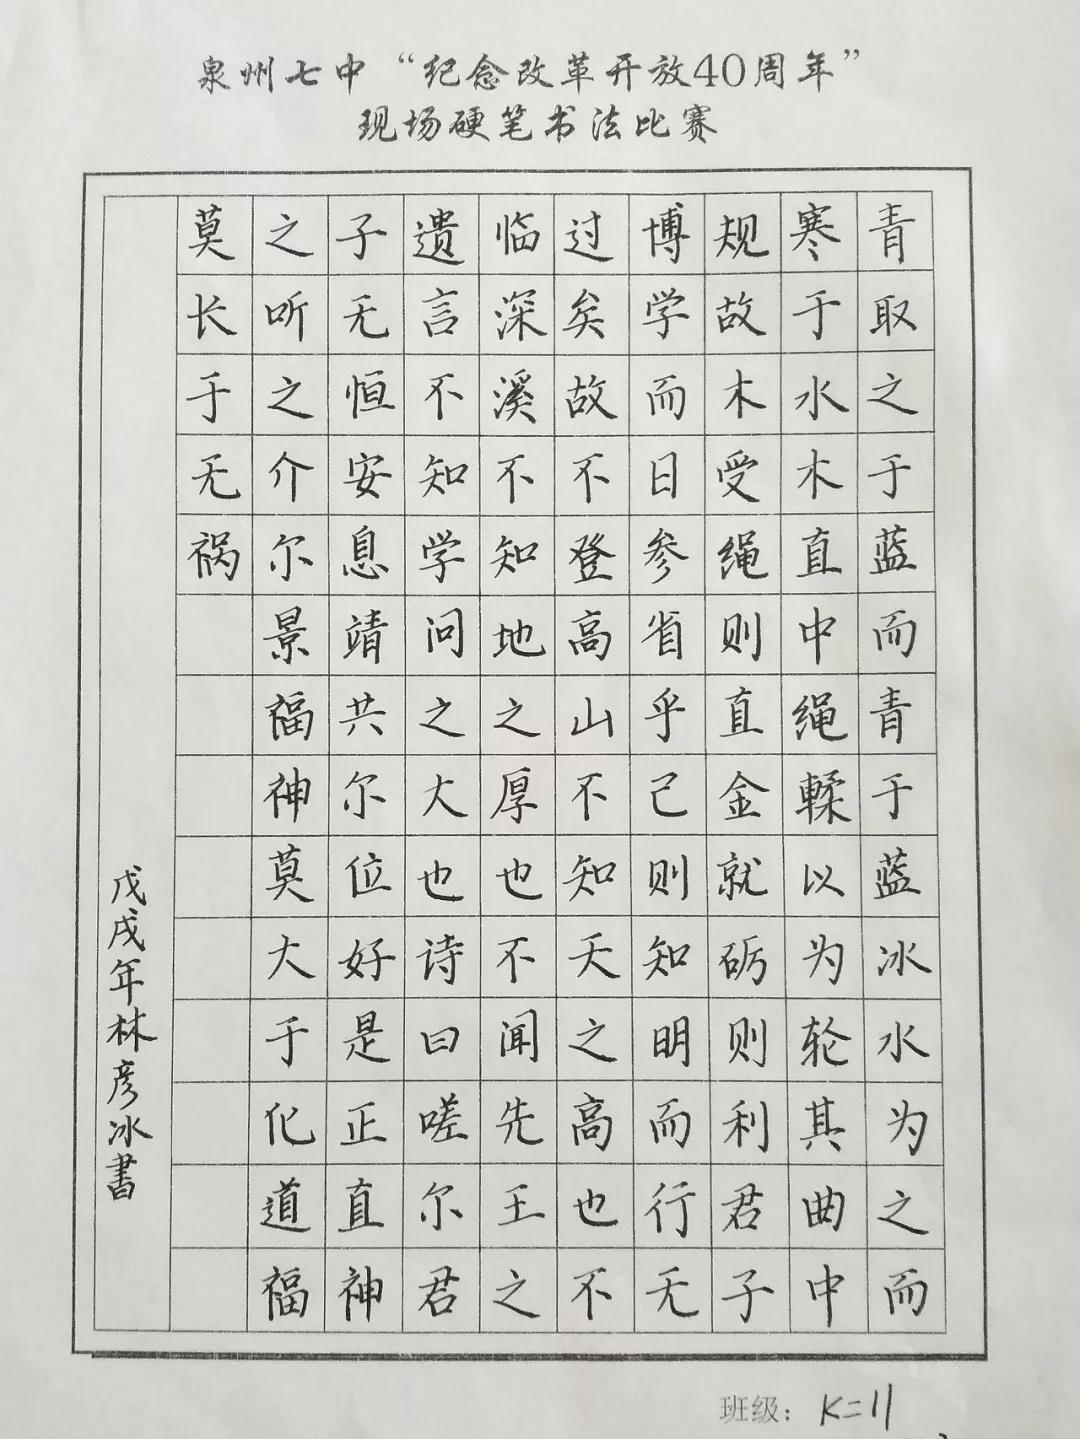 泉州七中“纪念改革开放40周年”
现场硬笔书法比赛
青取之于蓝而青于蓝冰水为之而
寒于水木直中绳輮以为轮其曲中
规故木受绳则直金就砺则利君子
博学而日参省乎己则知明而行无
过矣故不登高山不知天之高也不
临深溪不知地之厚也不闻先王之
遗言不知学问之大也诗曰嗟尔君
子无恒安息靖共尔位好是正直神
之听之介尔景福神莫大于化道福
莫长于无祸
戊戌年林彦冰書
班级：K二11